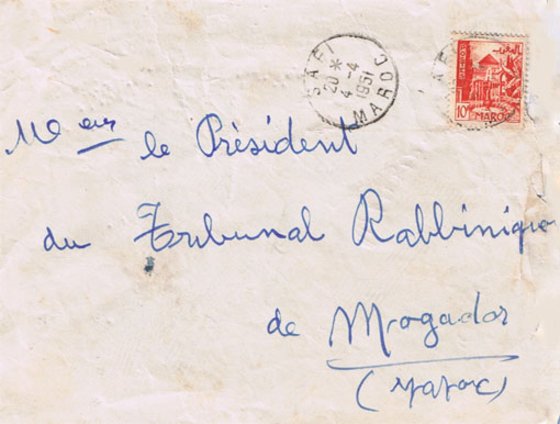 SAFI
20 *
4 - 4
1951
MAROC
10F MAROC
Mr eur le Président
du Tribunal Rabbinique
de Mogador
(Maroc)